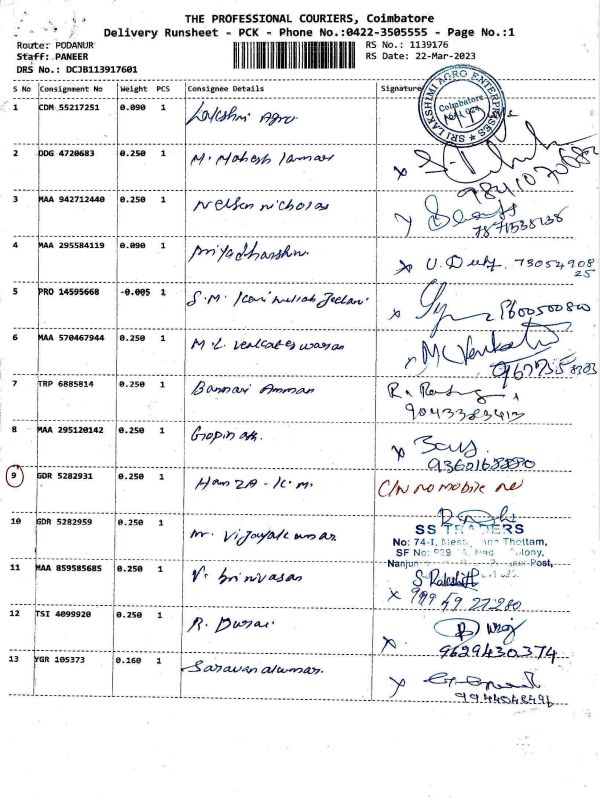 THE PROFESSIONAL COURIERS, Coimbatore
Delivery Runsheet - PCK - Phone No.:0422-3505555 - Page No.:1
Route: PODANUR
RS No.: 1139176
Staff: PANEER
RS Date: 22-Mar-2023
DRS No.: DCJB113917601
S No Consignment No Weight PCS Consignee Details Signature
SRI LAKSHIMI AGRO ENTERPRISES
Coimbatore
1 CDM 55217251 0.090 1 Lakshmi Agro
2 DDG 4720683 0.250 1 M. Mahesh
3 MAA 942712440 0.250 1 Nelson nicholas
7871538138
4 MAA 295584119 0.090 1 Priyadharshini
U. 7305490825
5 PRO 14595668 -0.005 1 S.M.
8600500800
6 MAA 570467944 0.250 1 M.L. Venkateswaran
7 TRP 6885814 0.250 1 Bannari Amman
8 MAA 295120142 0.250 1 Gopinath
9 GDR 5282931 0.250 1 HamZA - K.M. C/N no mobile no
10 GDR 5282959 0.250 1 Mr. Vijayakumar
SS TRADERS
No: 74-I, Thottam,
SF No: 929 Colony,
Post,
11 MAA 859585685 0.250 1 V. Srinivasan
S. Rakshith
999 49 27280
12 TSI 4099920 0.250 1 R. Durai
9629430374
13 YGR 105373 0.160 1 Saravanakumar
9944048496